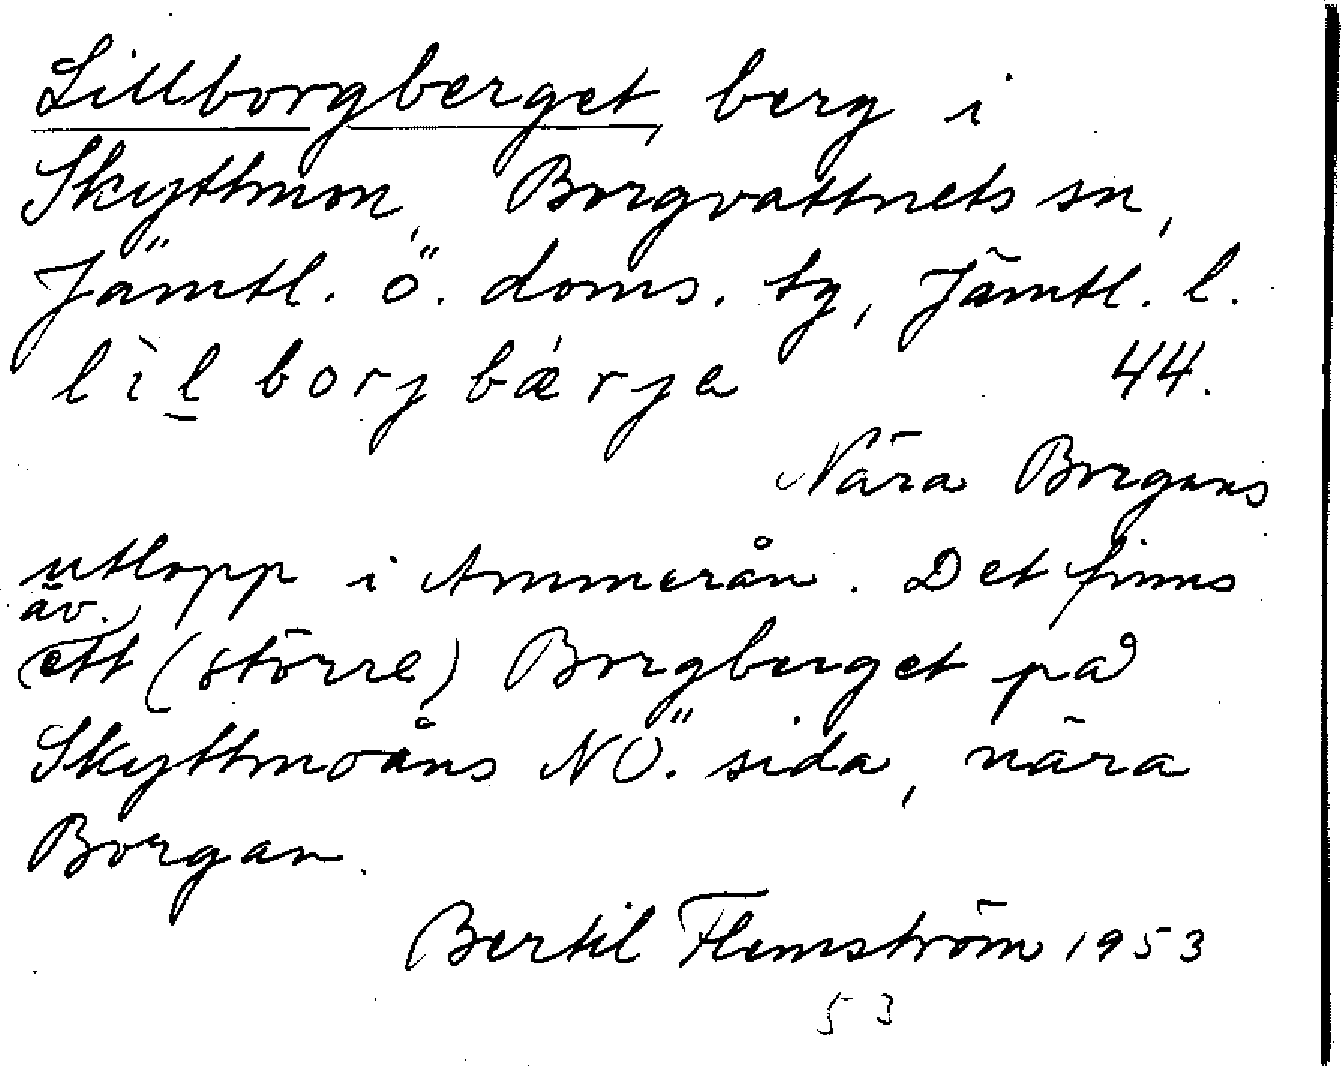 Lillborgberget, berg i
Skyttmon, Borgvattnets sn,
Jämtl. ö. doms. tg, Jämtl. l.
lìl borj bǽrje 44.
Nära Borgans
utlopp i Ammerån. Det finns
äv.
ett (större) Borgberget på
Skyttmoåns NÖ. sida, nära
Borgan.
Bertil Flemström 1953
53